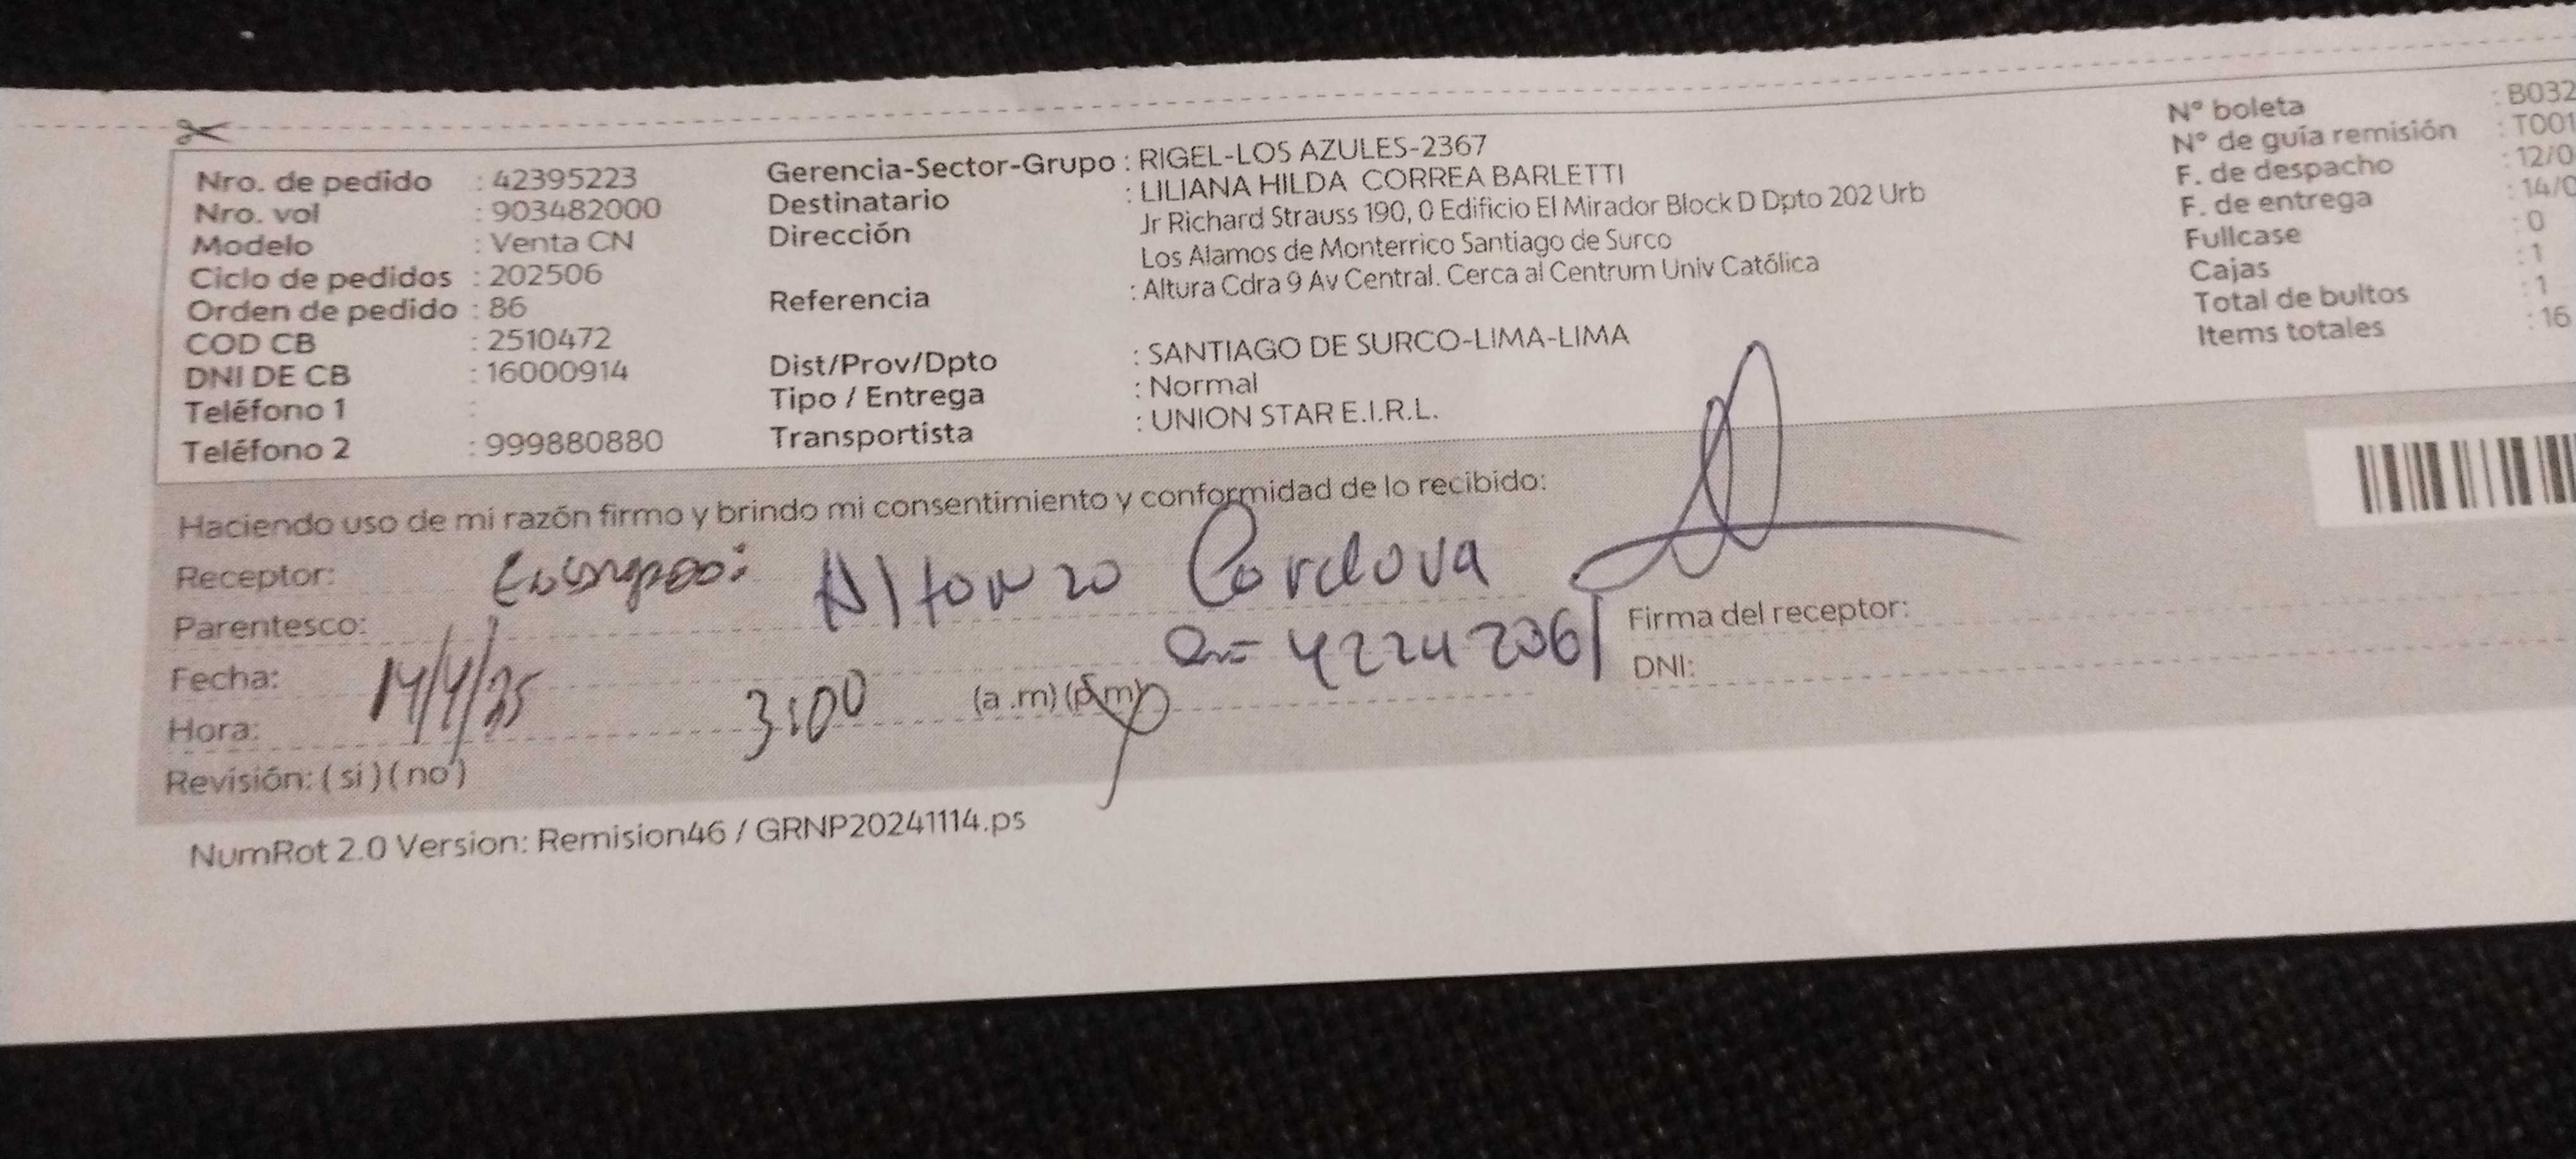 Nro. de pedido : 42395223
Nro. vol : 903482000
Modelo : Venta CN
Ciclo de pedidos : 202506
Orden de pedido : 86
COD CB : 2510472
DNI DE CB : 16000914
Teléfono 1 :
Teléfono 2 : 999880880
Gerencia-Sector-Grupo : RIGEL-LOS AZULES-2367
Destinatario : LILIANA HILDA CORREA BARLETTI
Dirección Jr Richard Strauss 190, 0 Edificio El Mirador Block D Dpto 202 Urb
Los Alamos de Monterrico Santiago de Surco
Referencia : Altura Cdra 9 Av Central. Cerca al Centrum Univ Católica
Dist/Prov/Dpto : SANTIAGO DE SURCO-LIMA-LIMA
Tipo / Entrega : Normal
Transportista : UNION STAR E.I.R.L.
N° boleta : B032
N° de guía remisión : T001
F. de despacho : 12/0
F. de entrega : 14/0
Fullcase : 0
Cajas : 1
Total de bultos : 1
Items totales : 16
Haciendo uso de mi razón firmo y brindo mi consentimiento y conformidad de lo recibido:
Receptor: Alfonzo Cordova
Parentesco: 42242061
Fecha: 14/4/25
Hora: 3:00 (a .m) (p.m)
Revisión: ( si ) ( no )
Firma del receptor:
DNI:
NumRot 2.0 Version: Remision46 / GRNP20241114.ps